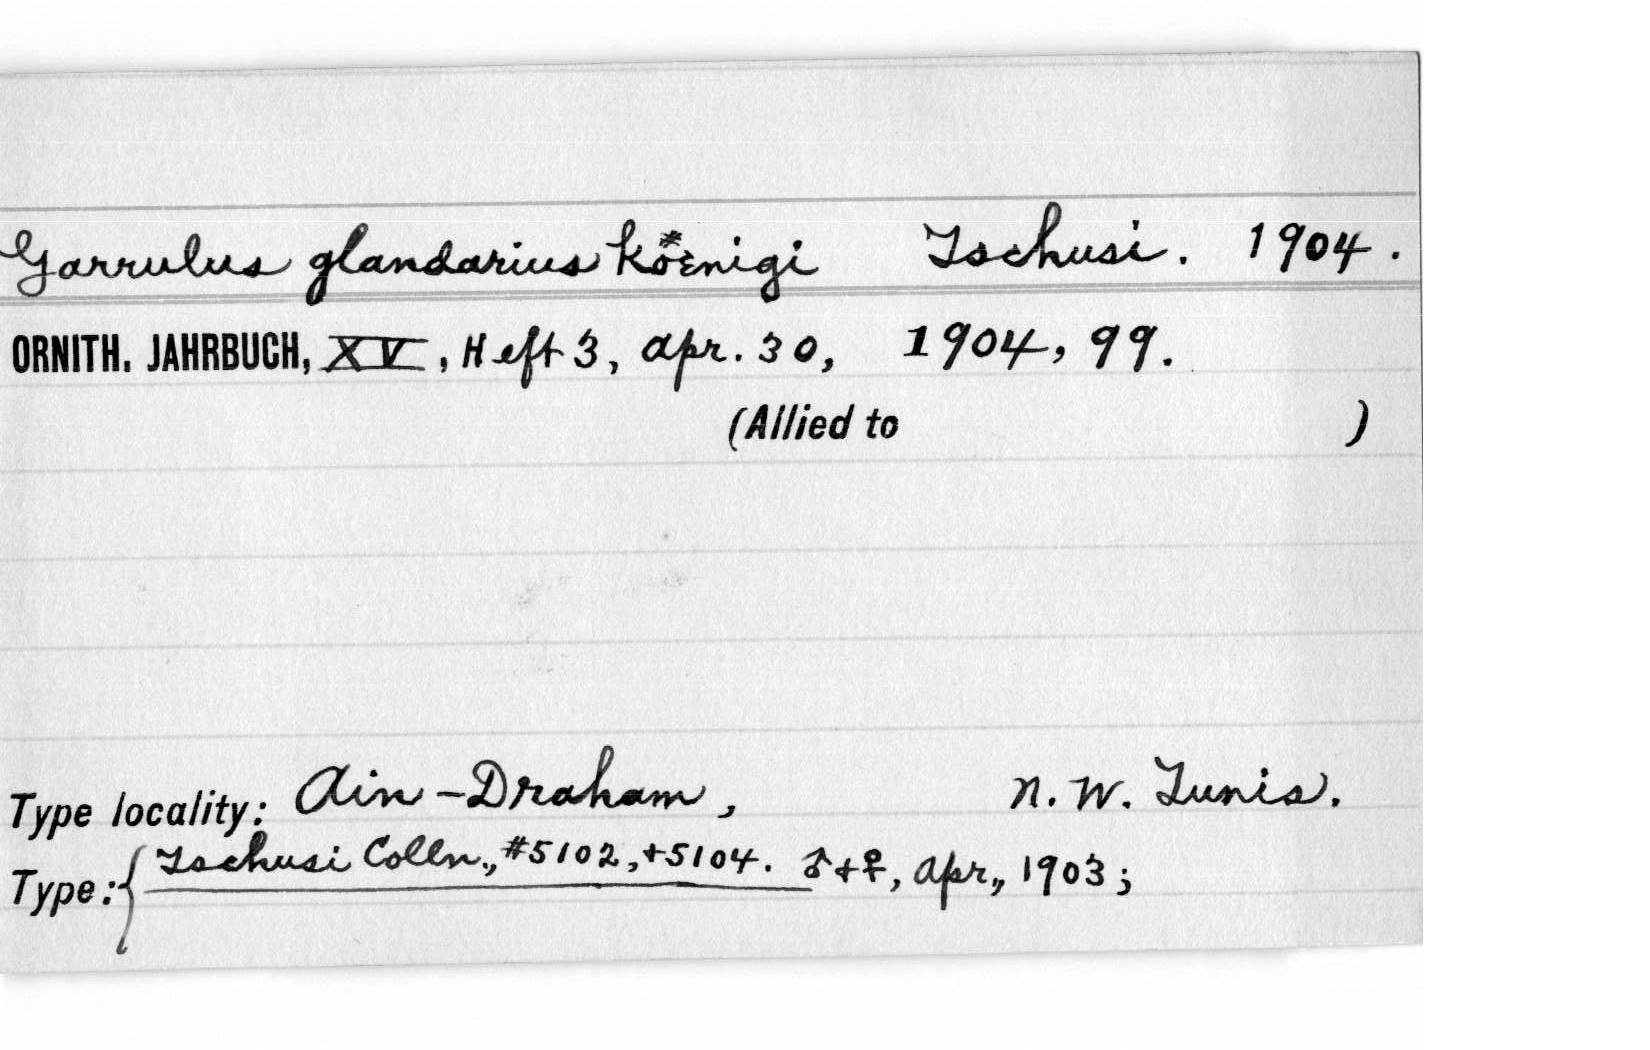 Garrulus glandarius köenigi Tschusi. 1904.
ORNITH. JAHRBUCH, XV, Heft 3, Apr. 30, 1904, 99.
(Allied to )
Type locality: Ain-Draham, N.W. Tunis.
Type: { Tschusi Colln., #5102, +5104. ♂+♀, Apr., 1903;